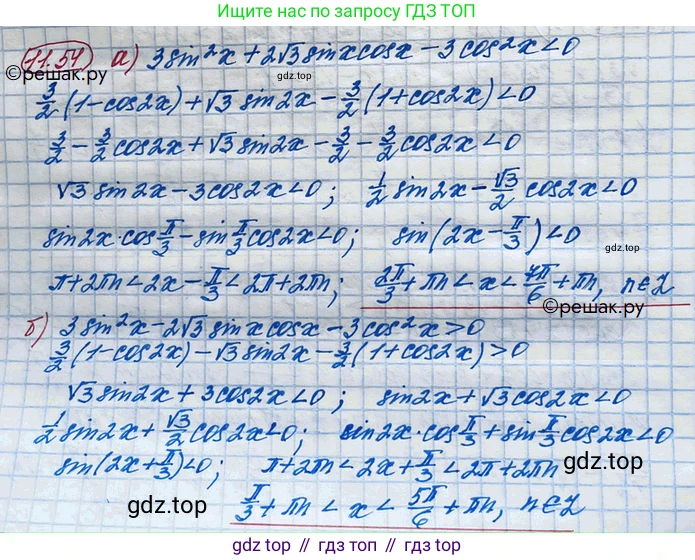 Больше решений по запросу ГДЗ ТОП
11.54 а) 3sin²x + 2√3 sinx cosx − 3cos²x < 0
©reшак.ру
gdz.top
©reшак.ру
3/2 (1−cos2x) + √3 sin2x − 3/2 (1+cos2x) < 0
3/2 − 3/2 cos2x + √3 sin2x − 3/2 − 3/2 cos2x < 0
√3 sin2x − 3cos2x < 0; 1/2 sin2x − √3/2 cos2x < 0
sin2x·cos π/3 − sin π/3 cos2x < 0; sin(2x − π/3) < 0
π + 2πn < 2x − π/3 < 2π + 2πn; 2π/3 + πn < x < 7π/6 + πn, n∈Z
б) 3sin²x − 2√3 sinx cosx − 3cos²x > 0
3/2 (1−cos2x) − √3 sin2x − 3/2 (1+cos2x) > 0
√3 sin2x + 3cos2x < 0; sin2x + √3 cos2x < 0
1/2 sin2x + √3/2 cos2x < 0; sin2x·cos π/3 + sin π/3 cos2x < 0
sin(2x + π/3) < 0; π + 2πn < 2x + π/3 < 2π + 2πn
π/3 + πn < x < 5π/6 + πn, n∈Z
gdz.top
gdz.top
gdz.top // гдз топ // gdz.top